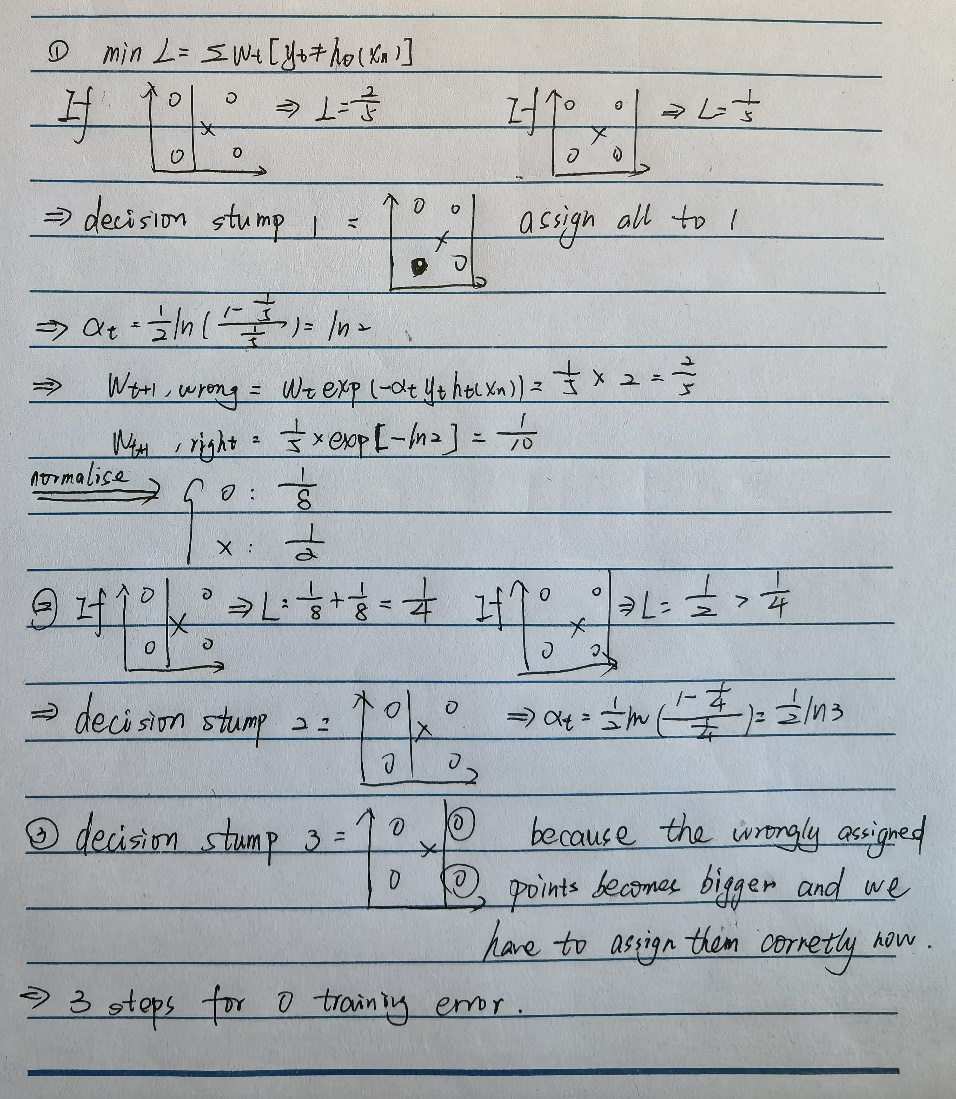 ① min L = Σ Wt [yt ≠ ht(xn)]
If 0 0 x 0 0 ⇒ L = 2/5 If 0 0 x 0 0 ⇒ L = 1/5
⇒ decision stump 1 = 0 0 x 0 assign all to 1
⇒ αt = 1/2 ln ( (1 - 1/5) / (1/5) ) = ln 2
⇒ Wt+1, wrong = Wt exp (-αt yt ht(xn)) = 1/5 × 2 = 2/5
Wt+1, right = 1/5 × exp [-ln 2] = 1/10
normalise { 0 : 1/8
x : 1/2
② If 0 0 x 0 0 ⇒ L = 1/8 + 1/8 = 1/4 If 0 0 x 0 0 ⇒ L = 1/2 > 1/4
⇒ decision stump 2 = 0 0 x 0 0 ⇒ αt = 1/2 ln ( (1 - 1/4) / (1/4) ) = 1/2 ln 3
③ decision stump 3 = 0 0 x 0 0 because the wrongly assigned
points becomes bigger and we
have to assign them corretly now.
⇒ 3 steps for 0 training error.